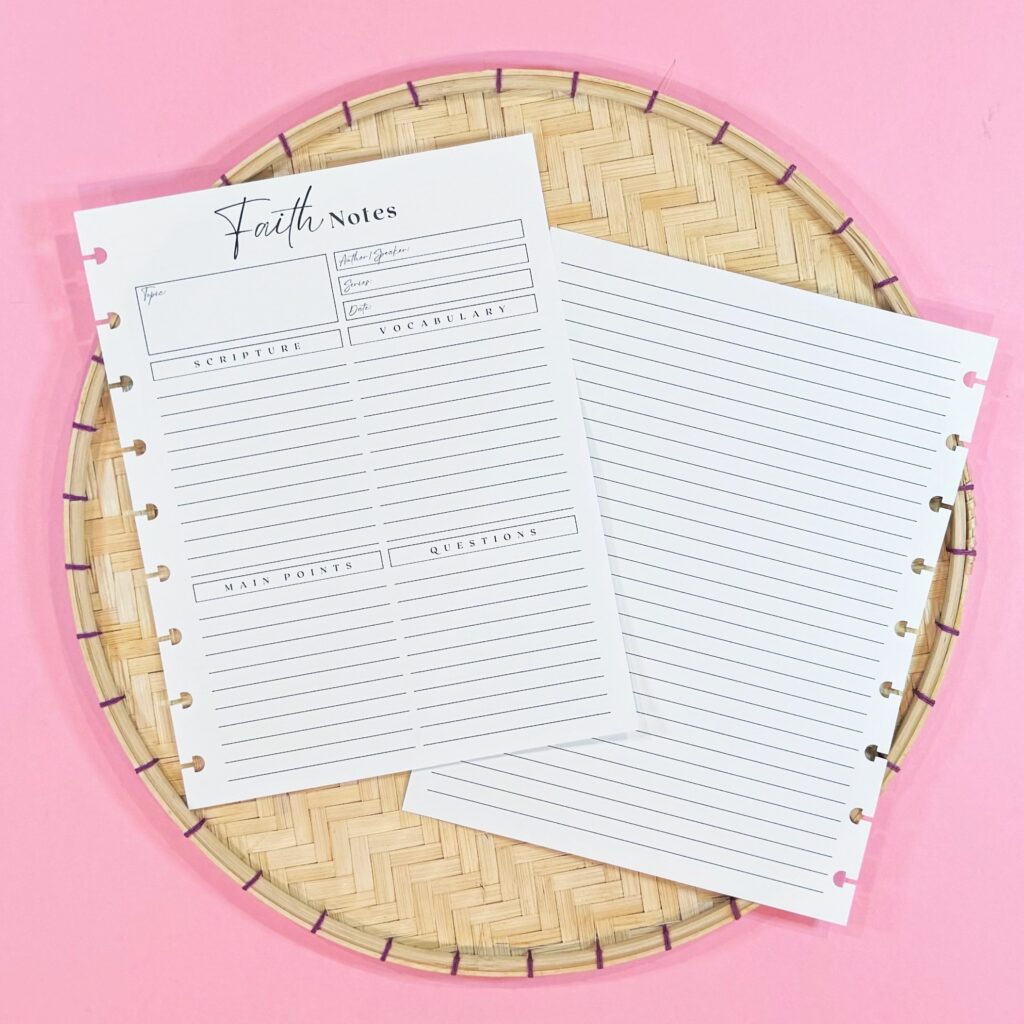 Faith Notes
Topic:
Author / Speaker:
Series:
Date:
SCRIPTURE
VOCABULARY
MAIN POINTS
QUESTIONS